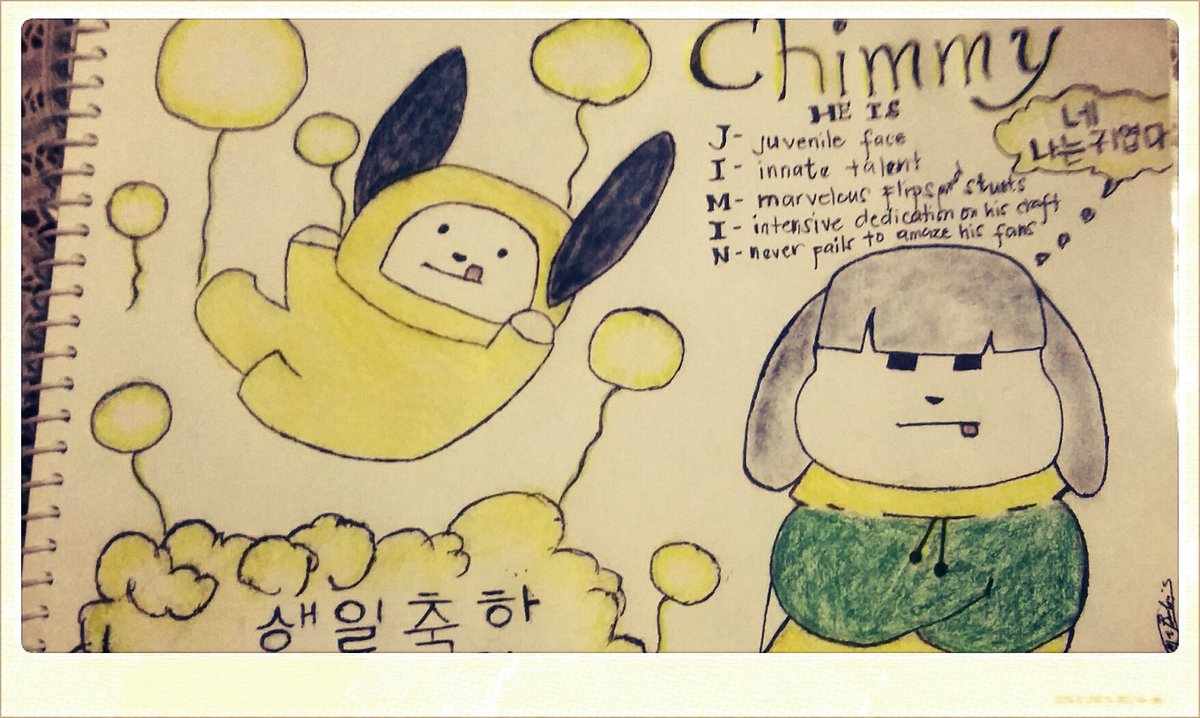 Chimmy
HE IS
J- juvenile face
I- innate talent
M- marvelous flips and stunts
I- intensive dedication on his craft
N- never fails to amaze his fans
네
나는귀엽다
생일축하